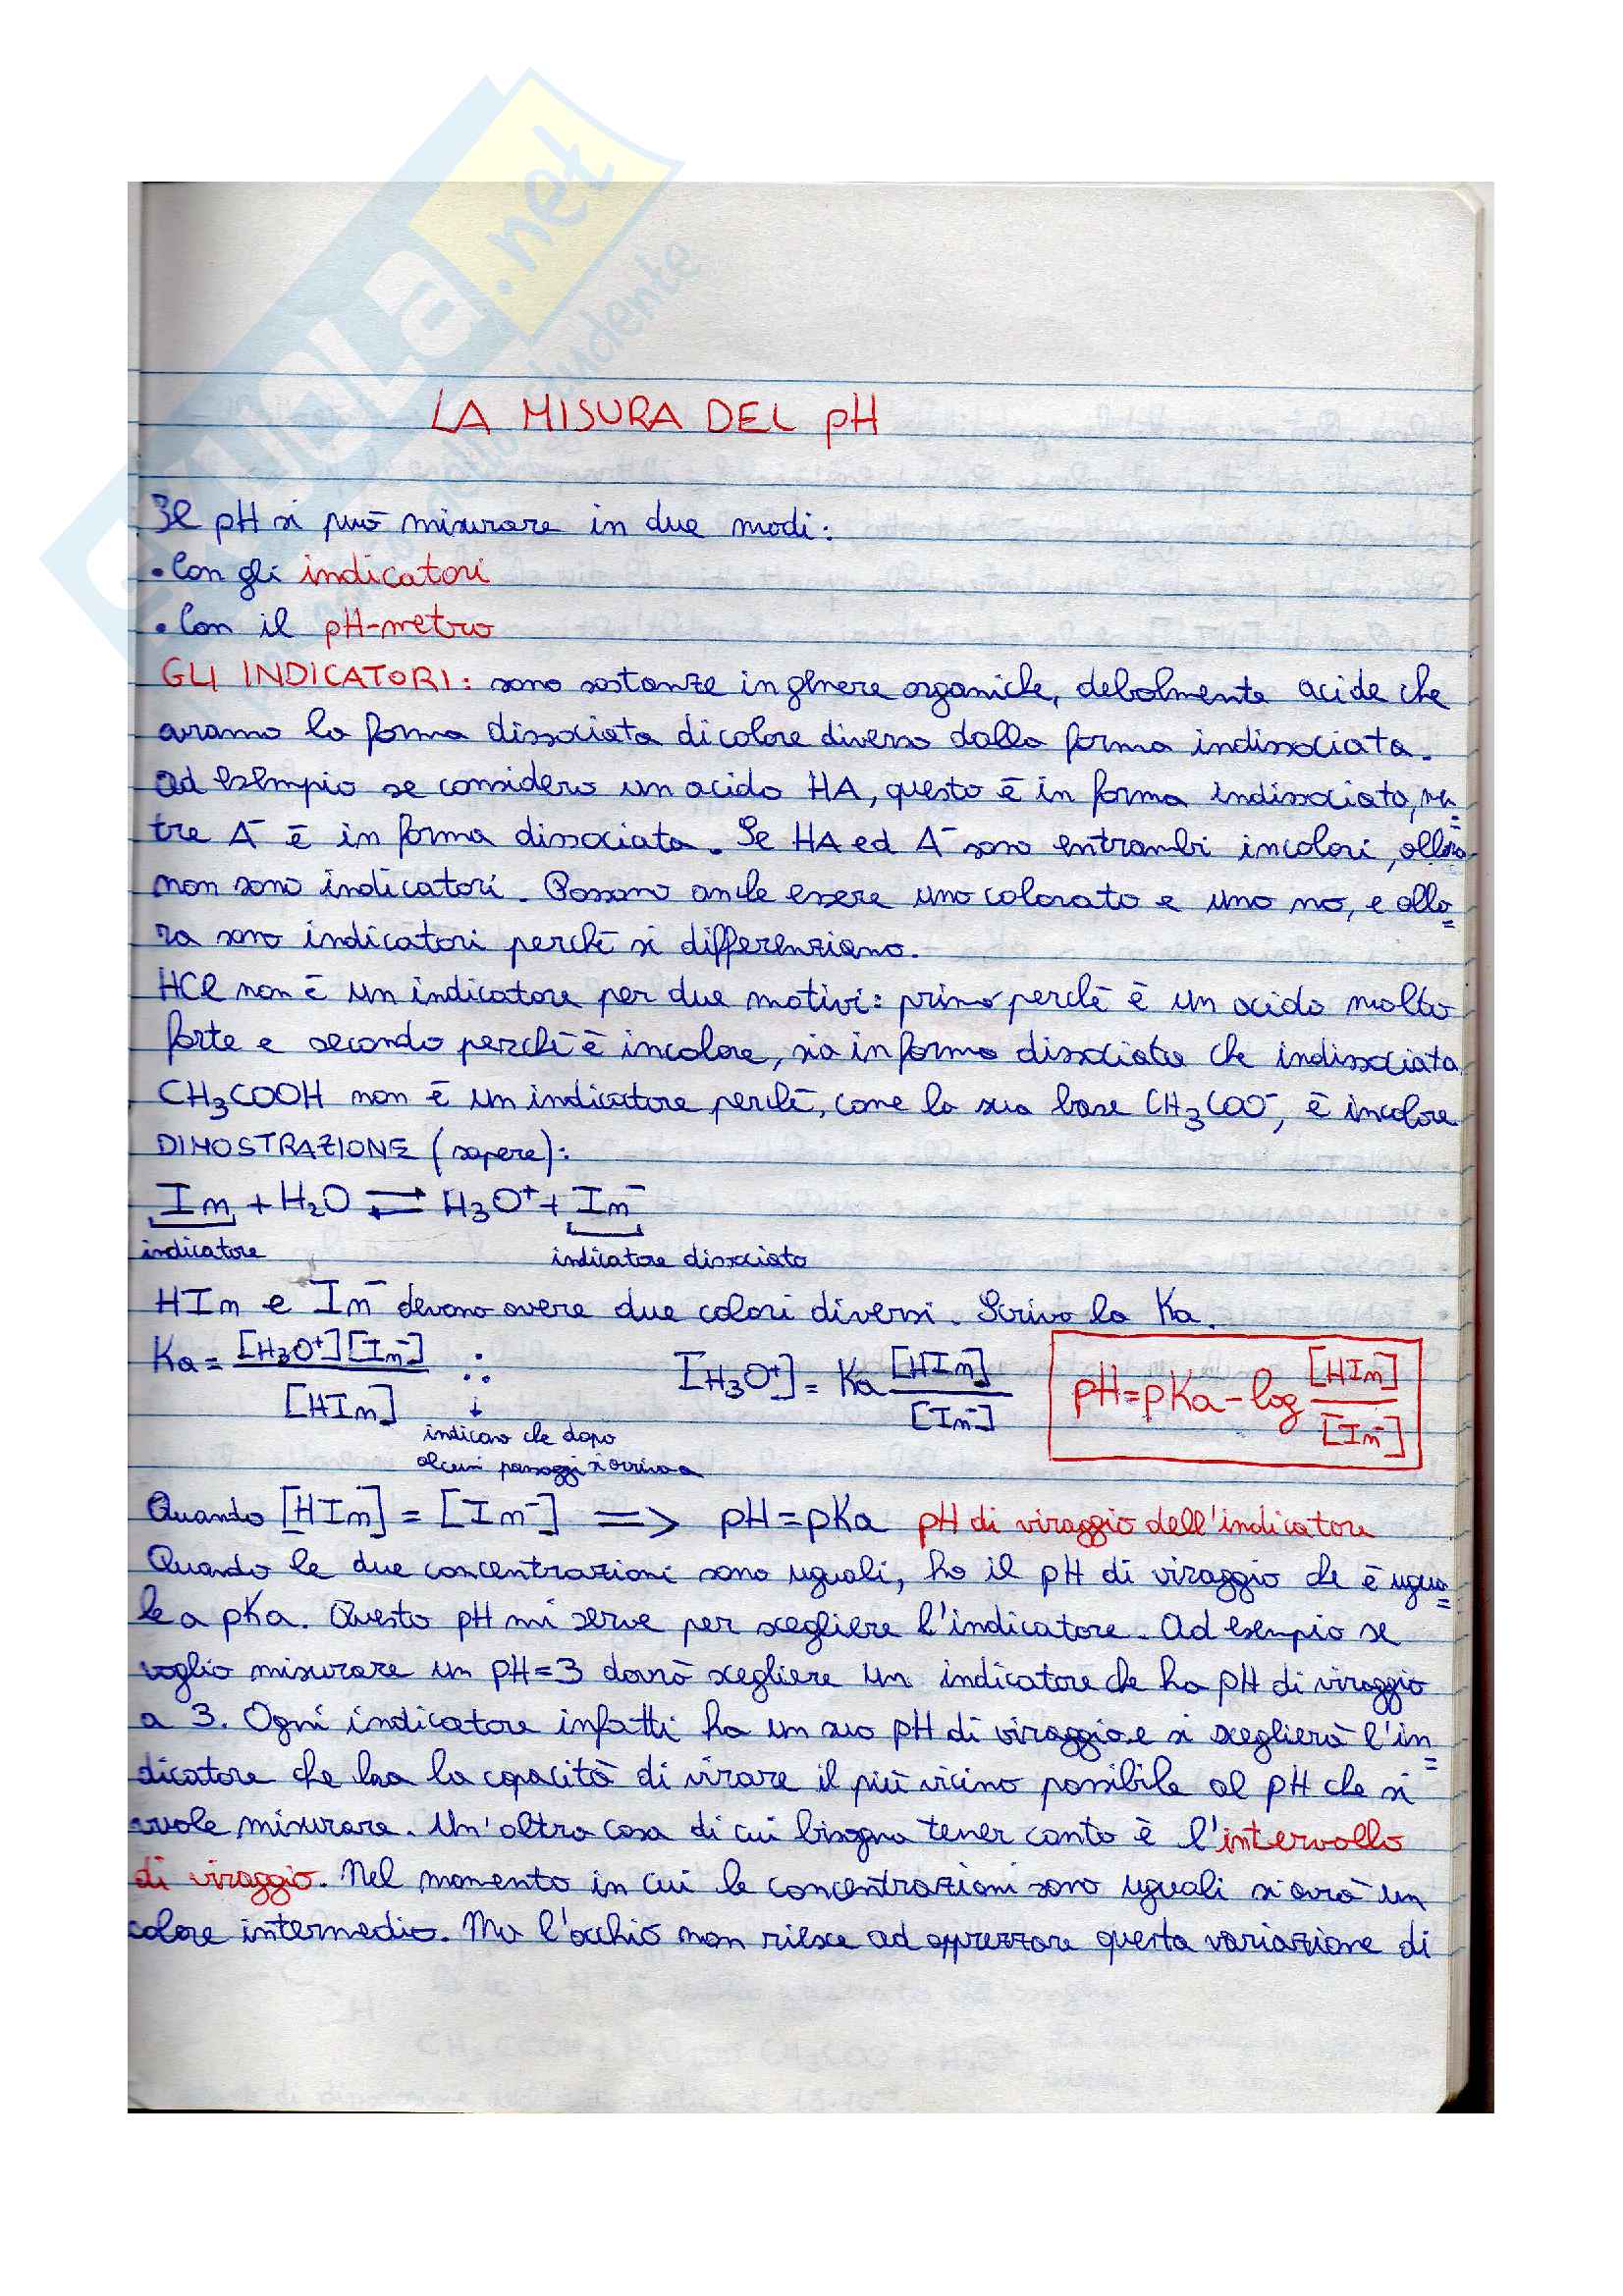 LA MISURA DEL pH
Il pH si può misurare in due modi:
• Con gli indicatori
• Con il pH-metro
GLI INDICATORI: sono sostanze in genere organiche, debolmente acide che
avranno la forma dissociata di colore diverso dalla forma indissociata.
Ad esempio se considero un acido HA, questo è in forma indissociata, men=
tre A⁻ è in forma dissociata. Se HA ed A⁻ sono entrambi incolori, allora
non sono indicatori. Possono anche essere uno colorato e uno no, e allo=
ra sono indicatori perché si differenziano.
HCl non è un indicatore per due motivi: primo perché è un acido molto
forte e secondo perché è incolore, sia in forma dissociata che indissociata.
CH₃COOH non è un indicatore perché, come la sua base CH₃COO⁻, è incolore
DIMOSTRAZIONE (sapere):
In + H₂O ⇌ H₃O⁺ + In⁻
indicatore indicatore dissociato
HIn e In⁻ devono avere due colori diversi. Scrivo la Ka.
Ka = [H₃O⁺][In⁻] / [HIn] ∴ [H₃O⁺] = Ka [HIn] / [In⁻] pH = pKa - log [HIn] / [In⁻]
↓
indicano che dopo
alcuni passaggi si arriva a
Quando [HIn] = [In⁻] => pH = pKa pH di viraggio dell'indicatore
Quando le due concentrazioni sono uguali, ho il pH di viraggio che è ugua=
le a pKa. Questo pH mi serve per scegliere l'indicatore. Ad esempio se
voglio misurare un pH=3 dovrò scegliere un indicatore che ha pH di viraggio
a 3. Ogni indicatore infatti ha un suo pH di viraggio e si sceglierà l'in=
dicatore che ha la capacità di virare il più vicino possibile al pH che si
vuole misurare. Un'altra cosa di cui bisogna tener conto è l'intervallo
di viraggio. Nel momento in cui le concentrazioni sono uguali si avrà un
colore intermedio. Ma l'occhio non riesce ad apprezzare questa variazione di